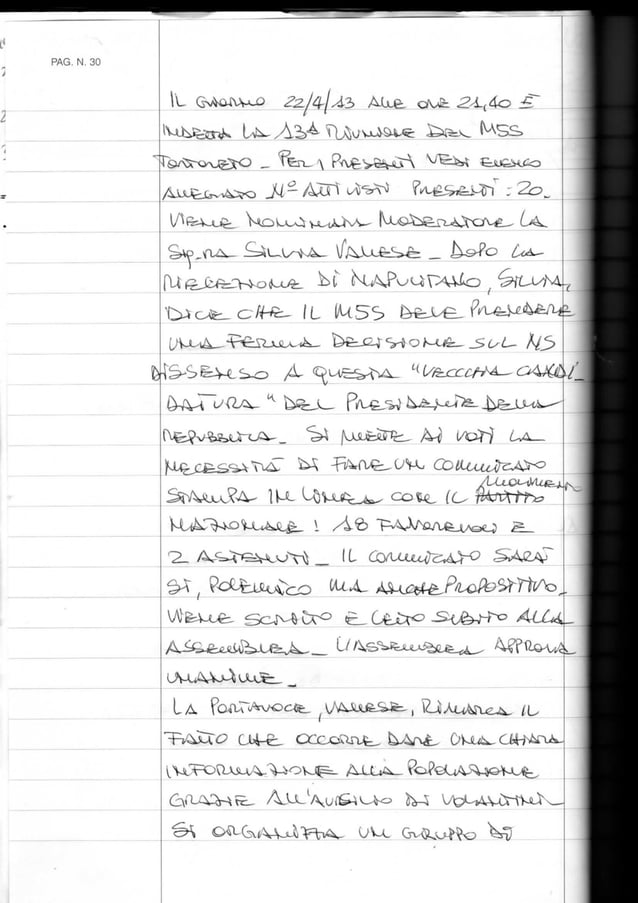 PAG. N. 30
IL GIORNO 22/4/13 ALLE ORE 21,40 È
INDETTA LA 13ª RIUNIONE DEL M5S
TORTORETO - PER I PRESENTI VEDI ELENCO
ALLEGATO Nº ATTIVISTI PRESENTI: 20.
VIENE NOMINATA MODERATORE LA
SIG.RA SILVIA VANESE - DOPO LA
RIELEZIONE DI NAPOLITANO, SILVIA,
DICE CHE IL M5S DEVE PRENDERE
UNA FERMA DECISIONE SUL NS
DISSENSO A QUESTA "VECCHIA CANDI-
DATURA" DEL PRESIDENTE DELLA
REPUBBLICA - SI METTE AI VOTI LA
NECESSITÀ DI FARE UN COMUNICATO
STAMPA IN LINEA CON IL PARTITO
NAZIONALE! 18 FAVOREVOLI E
2 ASTENUTI - IL COMUNICATO SARÀ
SI, POLEMICO MA ANCHE PROPOSITIVO -
VIENE SCRITTO E LETTO SUBITO ALLA
ASSEMBLEA - L'ASSEMBLEA APPROVA
UNANIME -
LA PORTAVOCE, VANESE, RIMARCA IL
FATTO CHE OCCORRE DARE UNA CHIARA
INFORMAZIONE ALLA POPOLAZIONE
GRAZIE ALL'AUSILIO DI VOLANTINI
SI ORGANIZZA UN GRUPPO DI